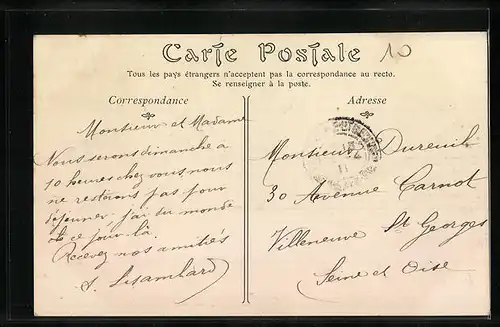 Carte Postale
10
Tous les pays étrangers n'acceptent pas la correspondance au recto.
Se renseigner à la poste.
Correspondance
Monsieur et Madame
Nous serons dimanche à
10 heures chez vous nous
ne resterons pas pour
déjeuner j'ai du monde
ce jour là.
Recevez nos amitiés
S. Lisambard
Adresse
Monsieur Dureuil
30 Avenue Carnot
Villeneuve St Georges
Seine et Oise